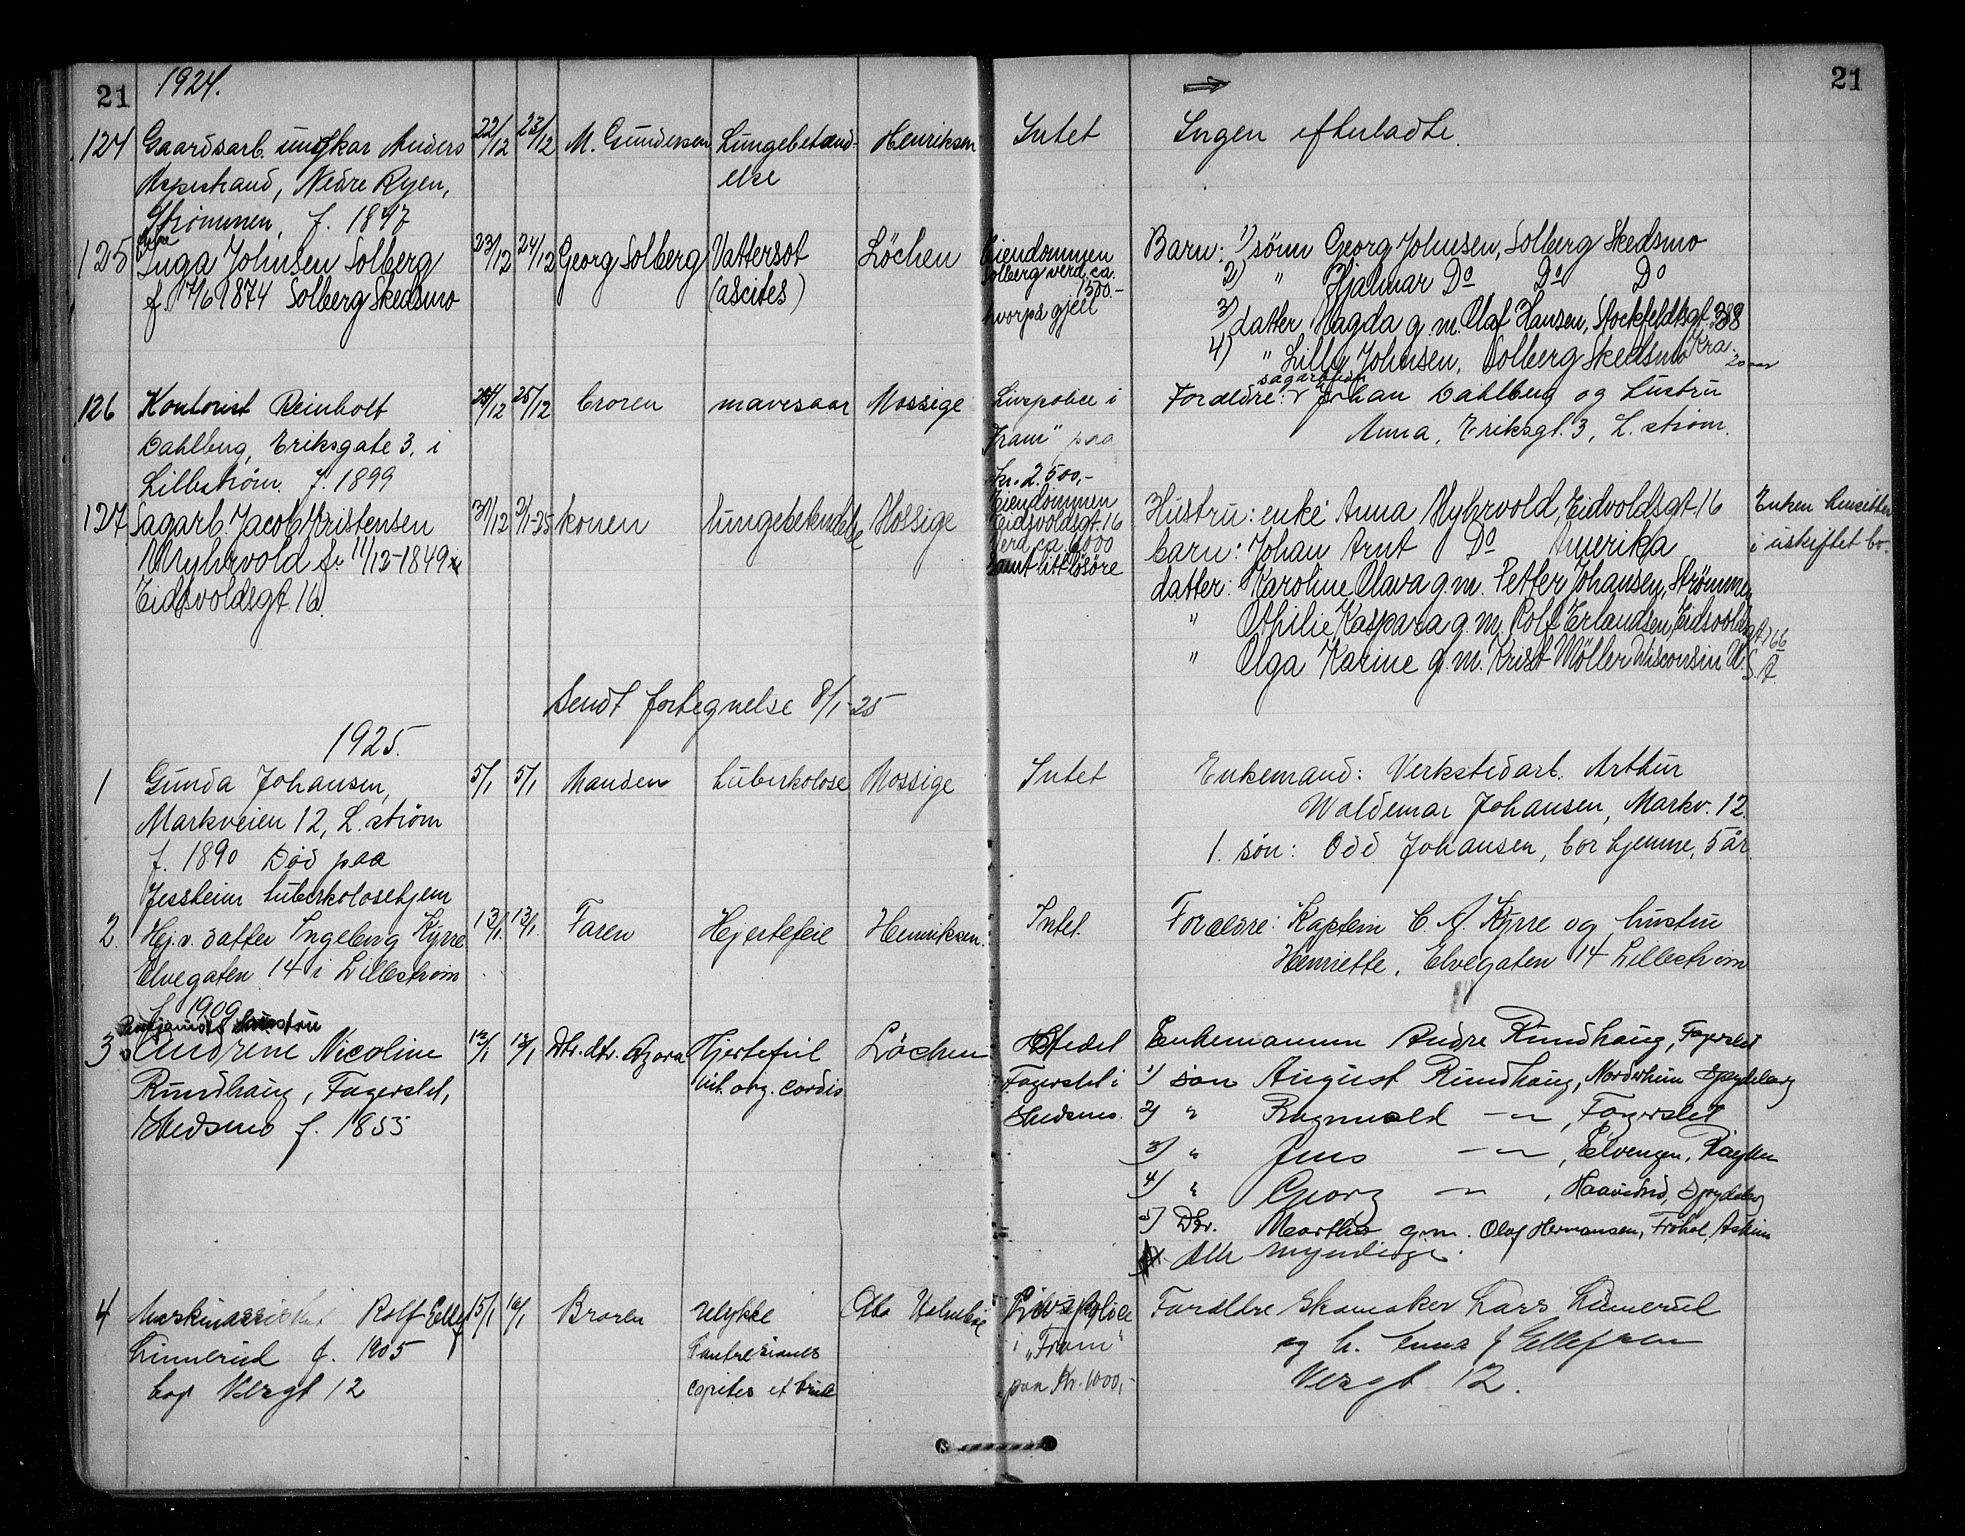 21 1924. 21
124 Gaardsarb. ungkar Anders 22/12 23/12 M. Gundersen Lungebetænd- Henriksen Intet Ingen efterladte.
Aspestrand, Nedre Ryen, else
Strømmen, f. 1897
125 Inga Johnsen Solberg 23/12 24/12 Georg Solberg Vattersot Löchen Eiendommen Barn: 1) sönn Georg Johnsen, Solberg Skedsmo
f. 17/6 1874 Solberg Skedsmo (ascites) Solberg verd. ca. 1500.- 2) " Hjalmar Do Do Do
hvorpå gjeld 3) datter Magda g.m. Olaf Hansen, Stockfeldtsgt. 38 Kra.
4) " Lilly Johnsen, Solberg Skedsmo 20 aar
126 Kontorist Reinholt 24/12 25/12 broren mavesaar Mossige Livspolice i Forældre: Johan Dahlberg og hustru
Dahlberg, Eriksgate 3, i "Fram" paa Anna, Eriksgt. 3, L.strøm.
Lillestrøm. f. 1899 kr. 2.500,-
127 Sagarb. Jacob Kristensen 31/12 2/1-25 konen lungebetendelse Mossige Eiendommen Hustru: enke Anna Myhrvold, Eidvoldsgt. 16 Enken hensitter
Myhrvold f. 11/12-1849 Eidsvoldsgt. 16 barn: Johan Arnt Do Amerika i uskiftet bo.
Eidsvoldsgt. 16 Verd ca. 6000 datter: Karoline Olava g.m. Petter Johansen, Strömmen
samt litt lösöre " Othilie Kaspara g.m. Rolf Erlandsen, Eidsvoldsgt. 16b
" Olga Karine g.m. Krist Möller Wisconsin U.S.A.
Sendt fortegnelse 8/1-25
1925.
1 Gunda Johansen, 5/1 5/1 Manden tuberkolose Mossige Intet Enkemand: Verkstedarb. Arthur
Markveien 12, L.strøm Waldemar Johansen, Markv. 12.
f. 1890 Død paa 1. søn: Odd Johansen, bor hjemme, 5 år.
Jessheim tuberkolosehjem
2. Hj.v. datter Ingeborg Kyrre 13/1 13/1. Faren Hjertefeil Henriksen. Intet. Forældre: Kaptein C. A. Kyrre og hustru
Elvegaten 14 i Lillestrøm Henriette, Elvegaten 14 Lillestrøm
f. 1909
hustru
3 Andrene Nicoline 12/1 13/1 Dtr. dtr. Hjertefeil Löchen Stedet Enkemannen Andre Rundhaug, Fagerslet
Rundhaug, Fagerslet, vit. org. cordis Fagerslet i 1) søn August Rundhaug, Norderhim Spydeberg
Skedsmo f. 1855 Skedsmo. 2) " Ragnvald — " — , Fagerslet
3) " Jens — " — , Elvengen, Røyken
4) " Georg — " — , Spydeberg
5) Dtr. Marthe g.m. Olaf Hermansen, Frøhol, Askim
Alle myndige.
4 Maskinassistent Rolf Ellef 15/1 16/1 Broren ulykke Otto Livspolice Foreldre Skomaker Lars Linnerud
Linnerud f. 1905 i "Fram" og h. Anna f Ellefsen
bor Vergt 12 capitis et paa Kr. 1000,- Vergt 12.